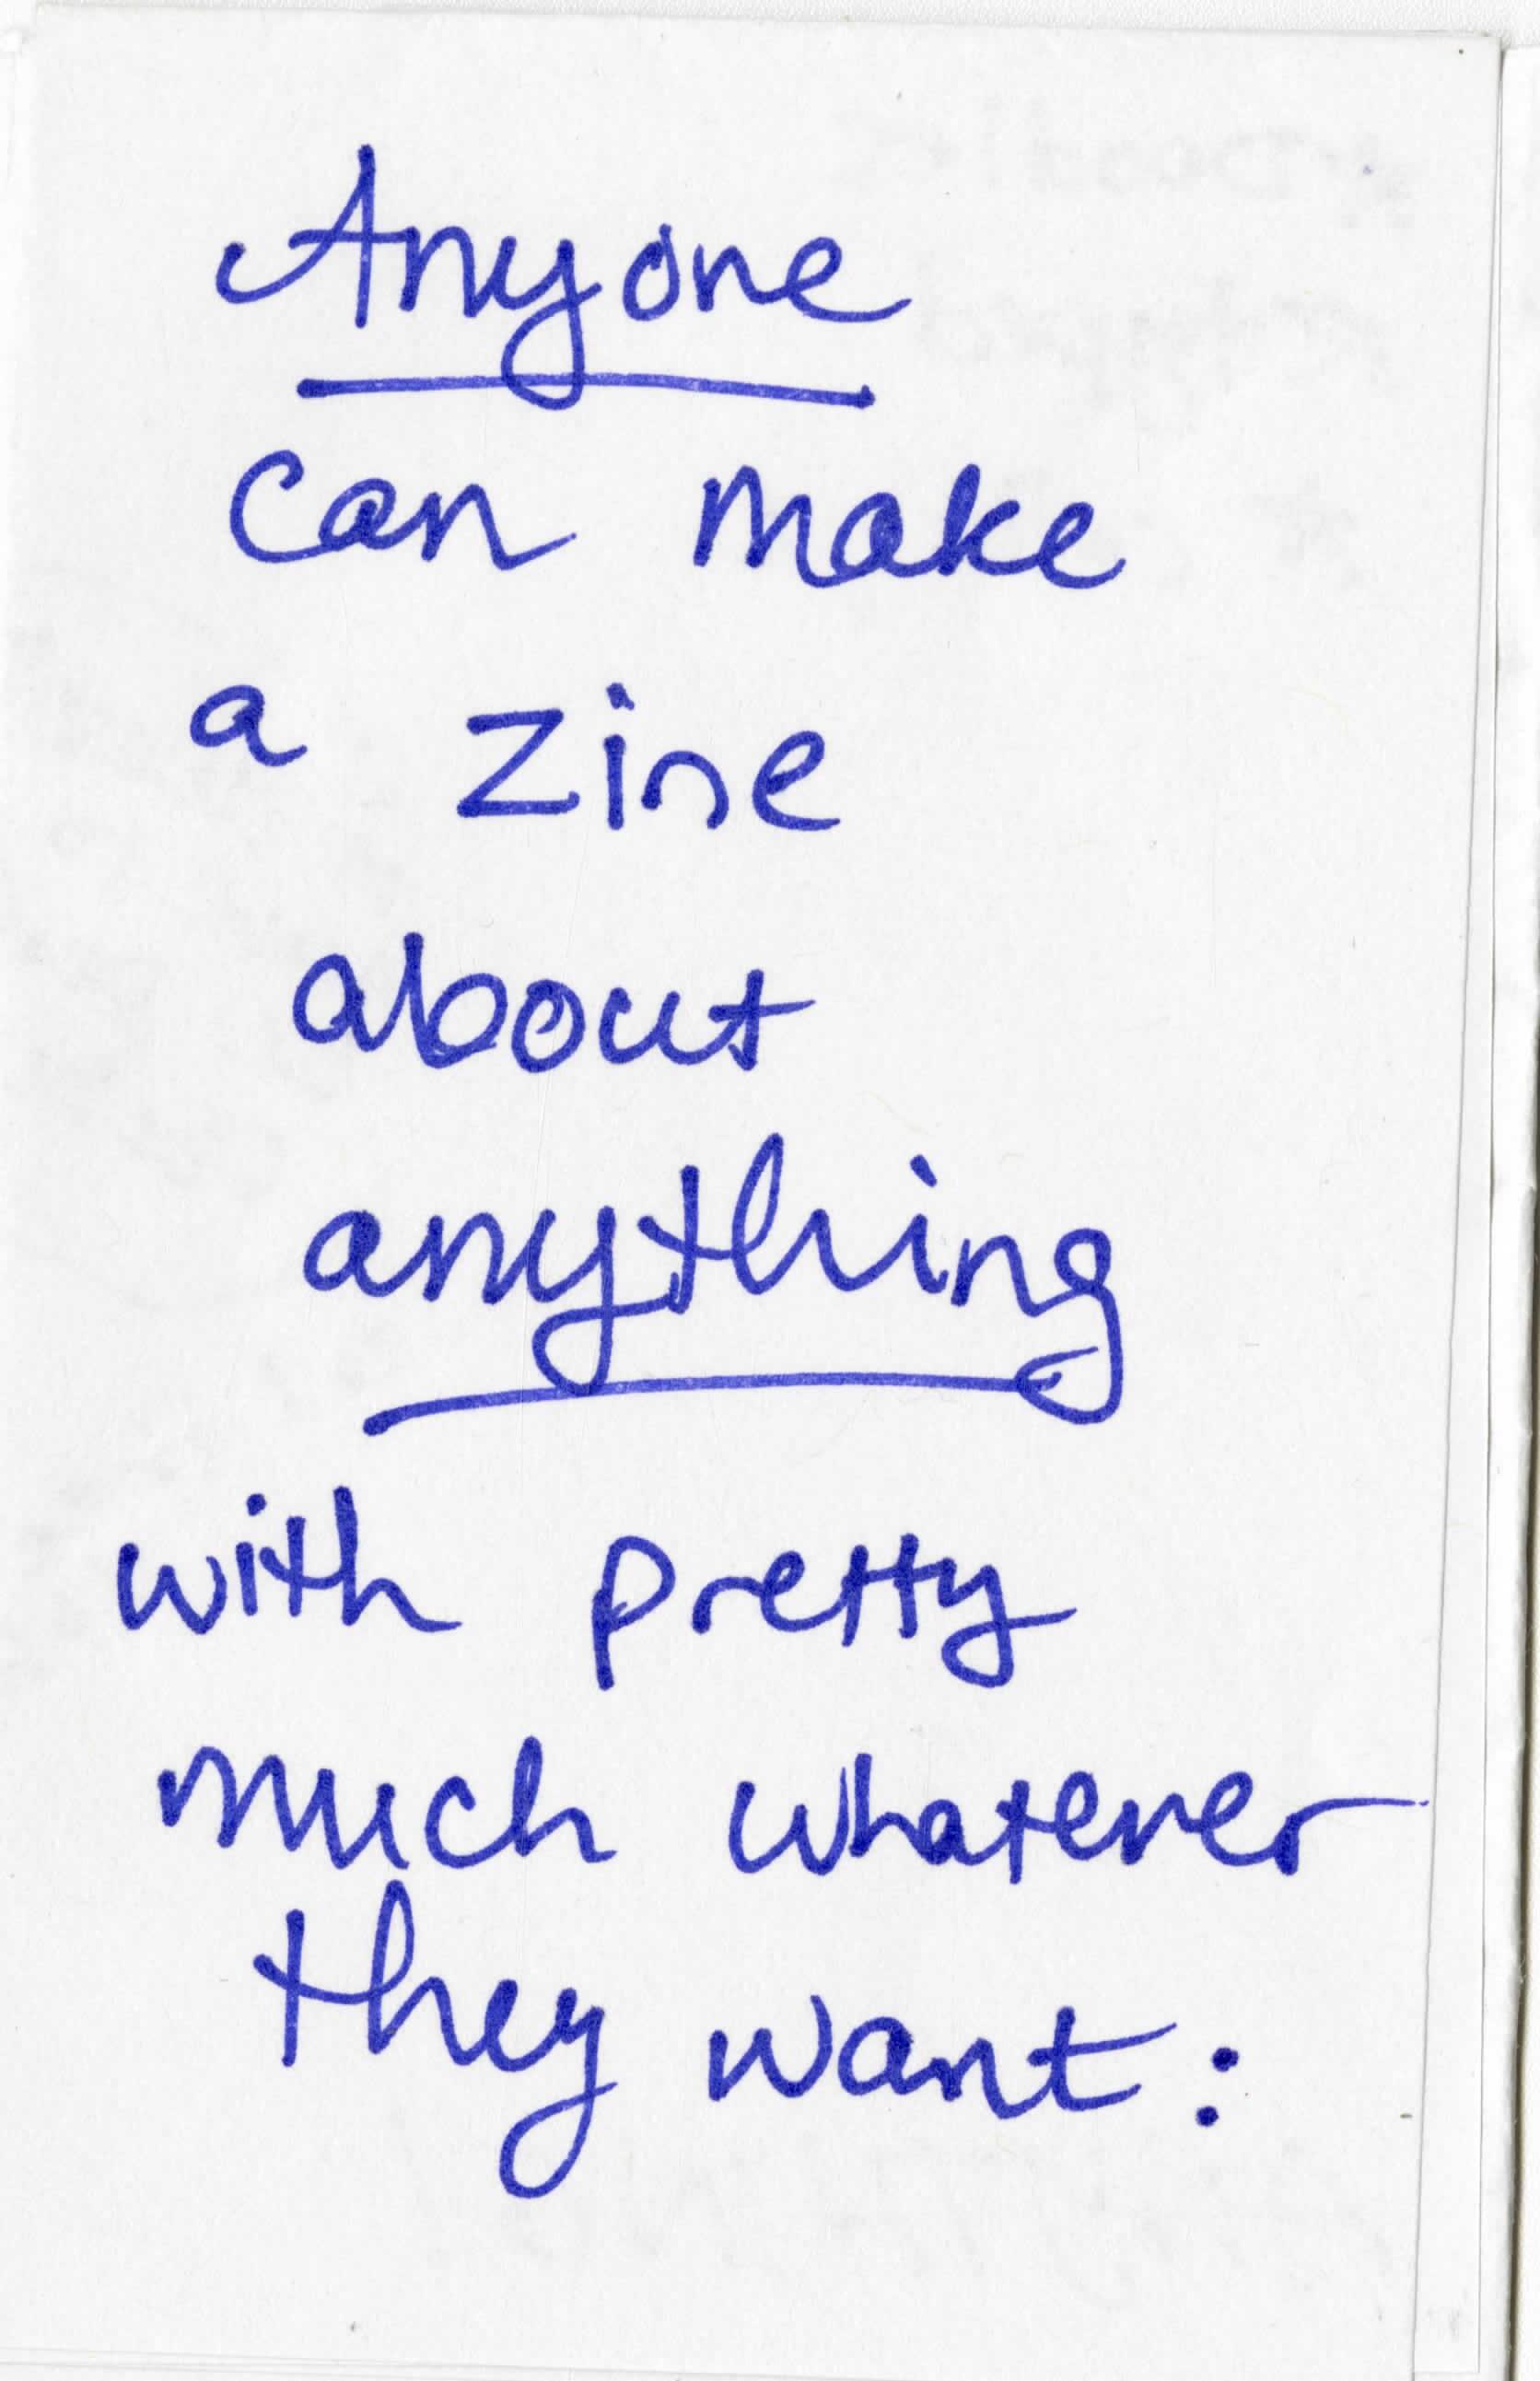 Anyone
can make
a zine
about
anything
with pretty
much whatever
they want: